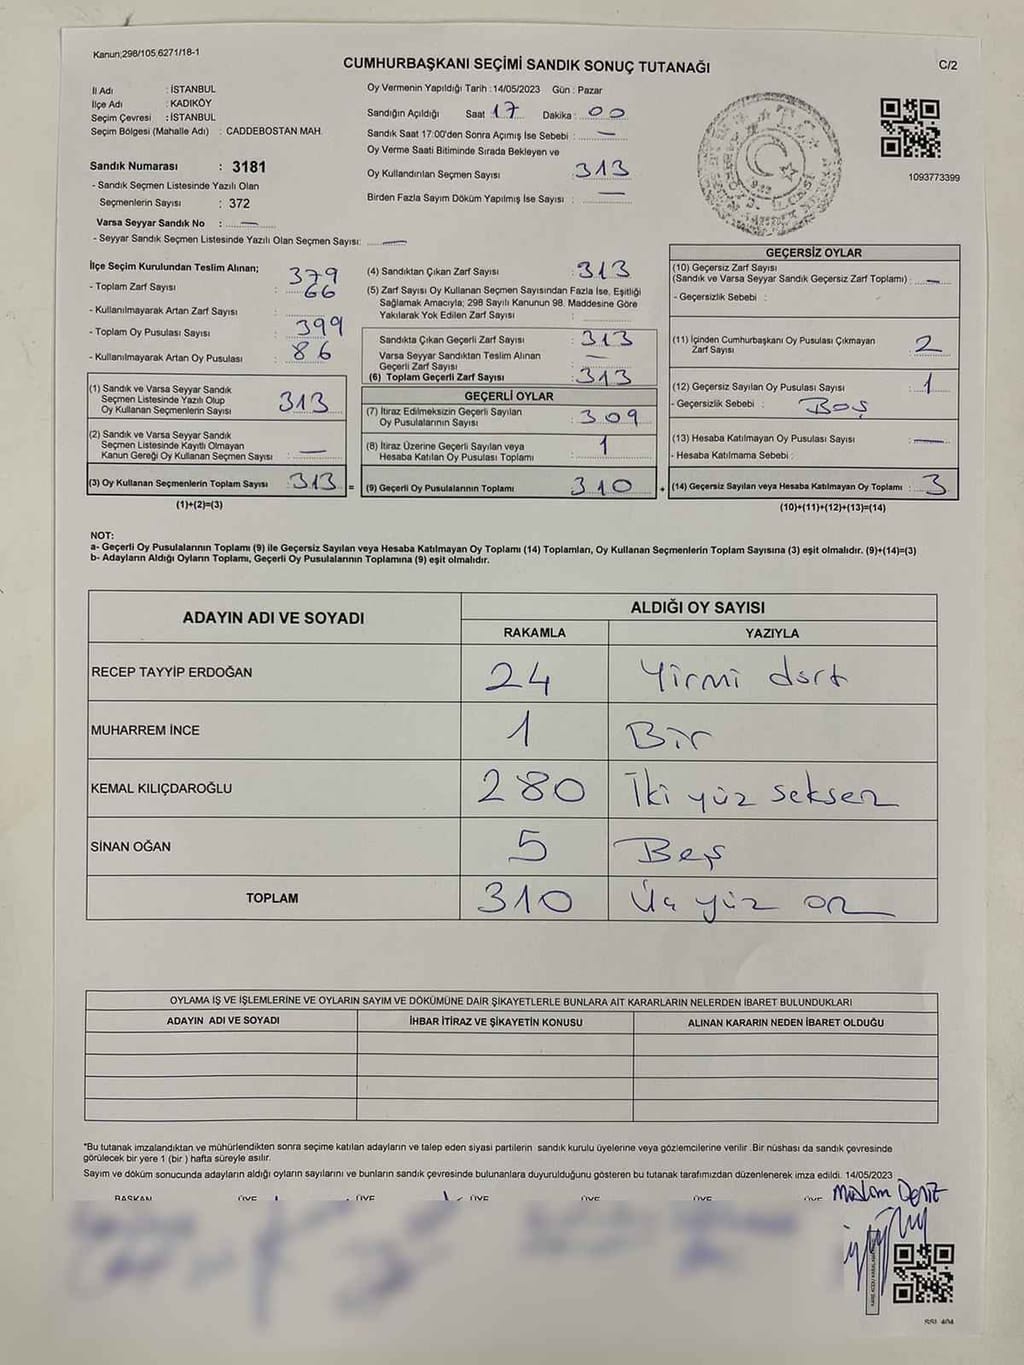 Kanun;298/105,6271/18-1
CUMHURBAŞKANI SEÇİMİ SANDIK SONUÇ TUTANAĞI
C/2
İl Adı : İSTANBUL
İlçe Adı : KADIKÖY
Seçim Çevresi : İSTANBUL
Seçim Bölgesi (Mahalle Adı) : CADDEBOSTAN MAH.
Sandık Numarası : 3181
- Sandık Seçmen Listesinde Yazılı Olan
Seçmenlerin Sayısı : 372
Varsa Seyyar Sandık No : —
- Seyyar Sandık Seçmen Listesinde Yazılı Olan Seçmen Sayısı: —
Oy Vermenin Yapıldığı Tarih : 14/05/2023 Gün : Pazar
Sandığın Açıldığı Saat 17 Dakika : 00
Sandık Saat 17:00'den Sonra Açımış İse Sebebi : —
Oy Verme Saati Bitiminde Sırada Bekleyen ve
Oy Kullandırılan Seçmen Sayısı : 313
Birden Fazla Sayım Döküm Yapılmış İse Sayısı : —
1093773399
İlçe Seçim Kurulundan Teslim Alınan;
- Toplam Zarf Sayısı : 379
- Kullanılmayarak Artan Zarf Sayısı : 66
- Toplam Oy Pusulası Sayısı : 399
- Kullanılmayarak Artan Oy Pusulası : 86
(1) Sandık ve Varsa Seyyar Sandık
Seçmen Listesinde Yazılı Olup
Oy Kullanan Seçmenlerin Sayısı : 313
(2) Sandık ve Varsa Seyyar Sandık
Seçmen Listesinde Kayıtlı Olmayan
Kanun Gereği Oy Kullanan Seçmen Sayısı : —
(3) Oy Kullanan Seçmenlerin Toplam Sayısı : 313 =
(1)+(2)=(3)
(4) Sandıktan Çıkan Zarf Sayısı : 313
(5) Zarf Sayısı Oy Kullanan Seçmen Sayısından Fazla İse, Eşitliği
Sağlamak Amacıyla; 298 Sayılı Kanunun 98. Maddesine Göre
Yakılarak Yok Edilen Zarf Sayısı :
Sandıkta Çıkan Geçerli Zarf Sayısı : 313
Varsa Seyyar Sandıktan Teslim Alınan
Geçerli Zarf Sayısı : —
(6) Toplam Geçerli Zarf Sayısı : 313
GEÇERLİ OYLAR
(7) İtiraz Edilmeksizin Geçerli Sayılan
Oy Pusulalarının Sayısı : 309
(8) İtiraz Üzerine Geçerli Sayılan veya
Hesaba Katılan Oy Pusulası Toplamı : 1
(9) Geçerli Oy Pusulalarının Toplamı : 310 +
GEÇERSİZ OYLAR
(10) Geçersiz Zarf Sayısı
(Sandık ve Varsa Seyyar Sandık Geçersiz Zarf Toplamı) : —
- Geçersizlik Sebebi :
(11) İçinden Cumhurbaşkanı Oy Pusulası Çıkmayan
Zarf Sayısı : 2
(12) Geçersiz Sayılan Oy Pusulası Sayısı : 1
- Geçersizlik Sebebi : Boş
(13) Hesaba Katılmayan Oy Pusulası Sayısı : —
- Hesaba Katılmama Sebebi :
(14) Geçersiz Sayılan veya Hesaba Katılmayan Oy Toplamı : 3
(10)+(11)+(12)+(13)=(14)
NOT:
a- Geçerli Oy Pusulalarının Toplamı (9) ile Geçersiz Sayılan veya Hesaba Katılmayan Oy Toplamı (14) Toplamları, Oy Kullanan Seçmenlerin Toplam Sayısına (3) eşit olmalıdır. (9)+(14)=(3)
b- Adayların Aldığı Oyların Toplamı, Geçerli Oy Pusulalarının Toplamına (9) eşit olmalıdır.
ADAYIN ADI VE SOYADI
ALDIĞI OY SAYISI
RAKAMLA YAZIYLA
RECEP TAYYİP ERDOĞAN 24 Yirmi dört
MUHARREM İNCE 1 Bir
KEMAL KILIÇDAROĞLU 280 İki yüz seksen
SİNAN OĞAN 5 Beş
TOPLAM 310 Üç yüz on
OYLAMA İŞ VE İŞLEMLERİNE VE OYLARIN SAYIM VE DÖKÜMÜNE DAİR ŞİKAYETLERLE BUNLARA AİT KARARLARIN NELERDEN İBARET BULUNDUKLARI
ADAYIN ADI VE SOYADI İHBAR İTİRAZ VE ŞİKAYETİN KONUSU ALINAN KARARIN NEDEN İBARET OLDUĞU
*Bu tutanak imzalandıktan ve mühürlendikten sonra seçime katılan adayların ve talep eden siyasi partilerin sandık kurulu üyelerine veya gözlemcilerine verilir .Bir nüshası da sandık çevresinde
görülecek bir yere 1 (bir ) hafta süreyle asılır.
Sayım ve döküm sonucunda adayların aldığı oyların sayılarını ve bunların sandık çevresinde bulunanlara duyurulduğunu gösteren bu tutanak tarafımızdan düzenlenerek imza edildi. 14/05/2023
BAŞKAN ÜYE ÜYE ÜYE ÜYE ÜYE ÜYE